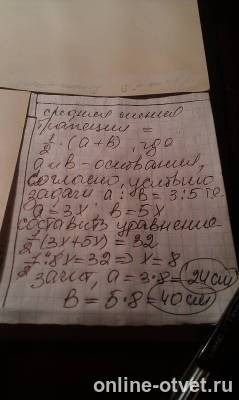 средняя линия
трапеции =
1/2 · (a+b), где
a и b - основания,
согласно, условию
задачи a : b = 3:5 т.е.
a = 3x, b = 5x
составить уравнение
1/2 (3x+5x) = 32
1/2 · 8x = 32 => x = 8
значит, a = 3·8 = 24 см
b = 5·8 = 40 см
online-otvet.ru